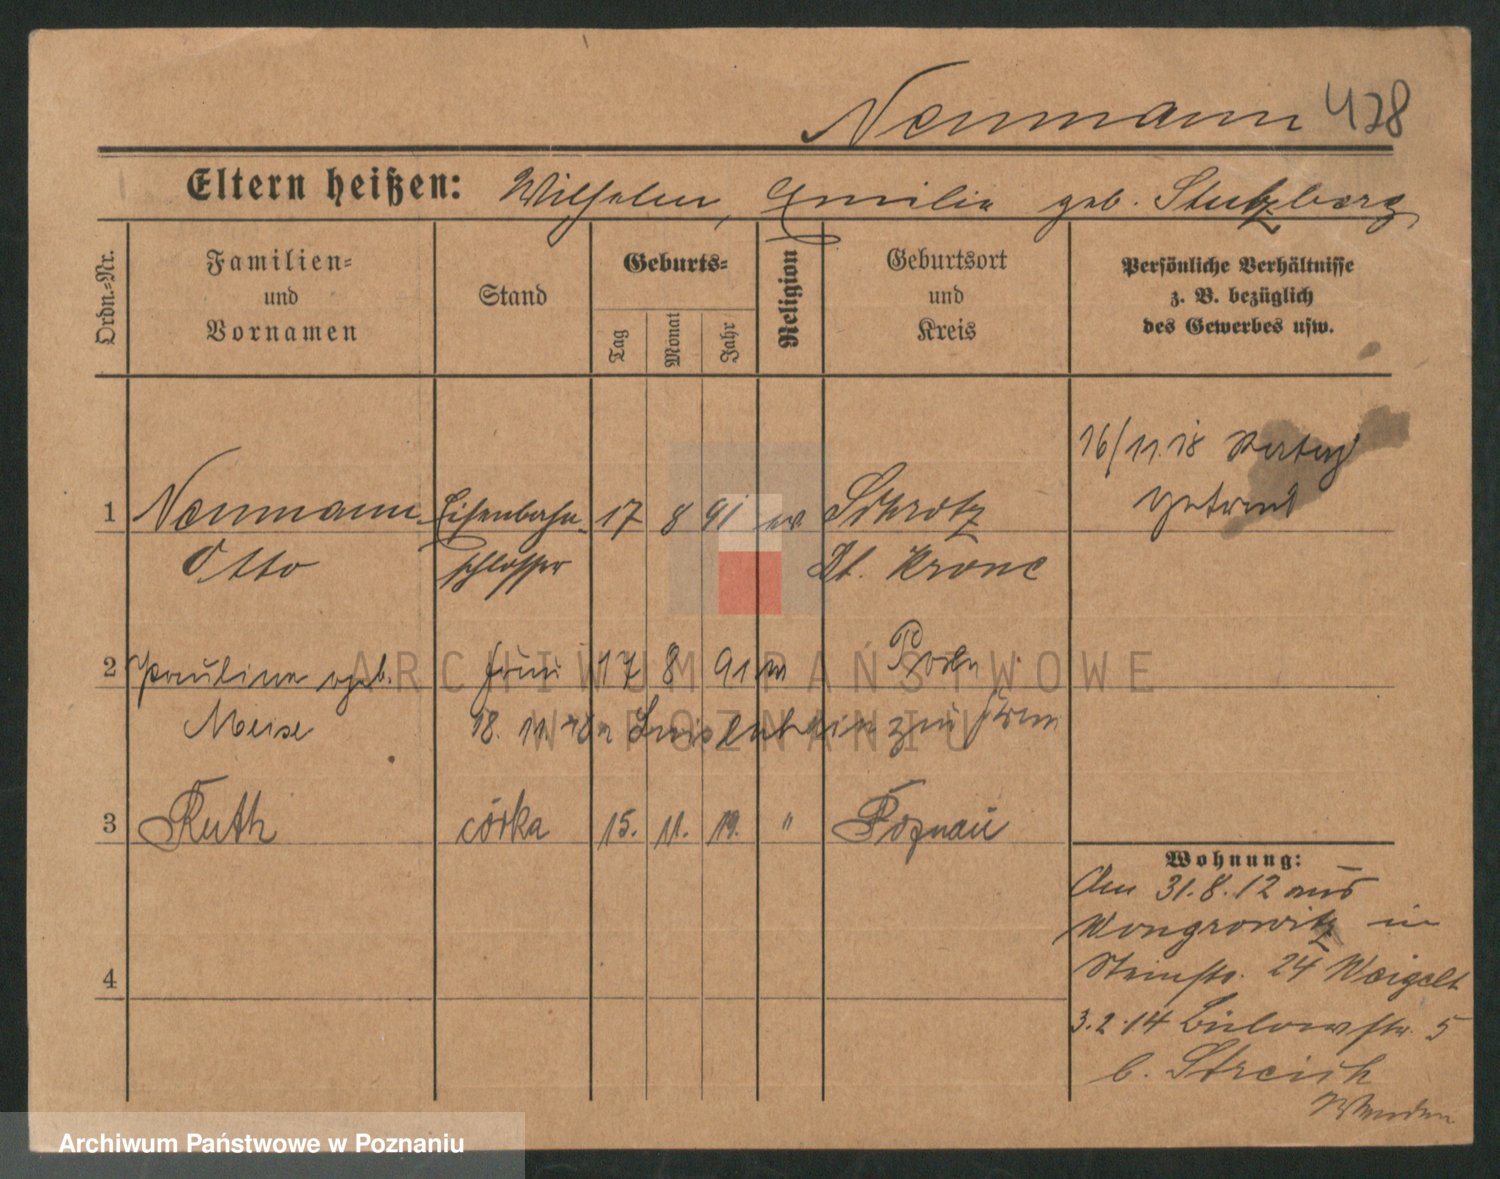 Neumann 478
Eltern heißen: Wilhelm, Emilie geb. Stutzberg
Ordn.-Nr.
Familien-
und
Vornamen
Stand
Geburts-
Tag
Monat
Jahr
Religion
Geburtsort
und
Kreis
Persönliche Verhältnisse
z. B. bezüglich
des Gewerbes usw.
16/11.18
getraut
1 Neumann Eisenbahn- 17 8 91 ev Schrotz
Otto schlosser Dt. Krone
2 Pauline geb. Frau 17 8 91 ev
Meise 18. 11. zur Frau
3 Ruth córka 15. 11. 19. " Poznań
4
Wohnung:
Am 31.8.12 aus
Wongrowitz in
Steinstr. 24 Weigelt
3.2.14 Bülowstr. 5
b. Streich
Wenden
ARCHIWUM PAŃSTWOWE
W POZNANIU
Archiwum Państwowe w Poznaniu